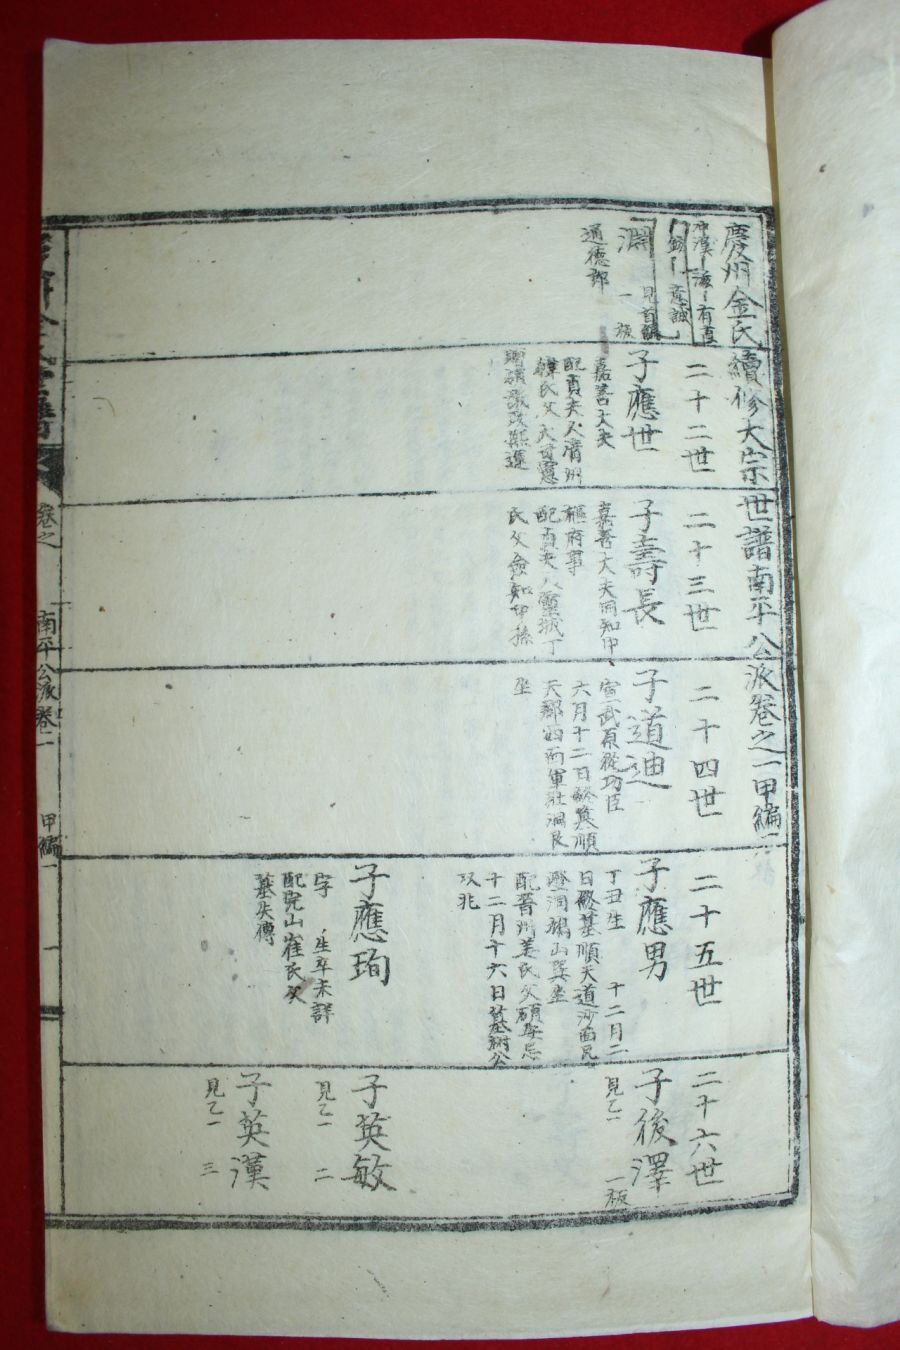 慶州金氏續修大宗世譜南平公派卷之一甲編一
淵
見首編
一板
通德郎
二十二世
子應世
嘉善大夫
配貞夫人清州
韓氏父大司憲
二十三世
子壽長
嘉善大夫同知中
樞府事
配貞夫人靈城丁
氏父僉知中孫
二十四世
子道迪
宣武原從功臣
六月十二日終墓順
天郡西面軍壯洞艮
坐
二十五世
子應男
丁丑生 十二月二
日終墓順天道沙面民
燈洞鵂山巽坐
配晋州姜氏父碩华忌
十二月十六日墓祔公
以兆
子應珣
字 生卒未詳
配完山崔氏父
墓失傳
二十六世
子後澤
見乙一
一板
子英敏
見乙一
二
子英漢
見乙一
三
卷之
南平公派卷一
甲編一
一